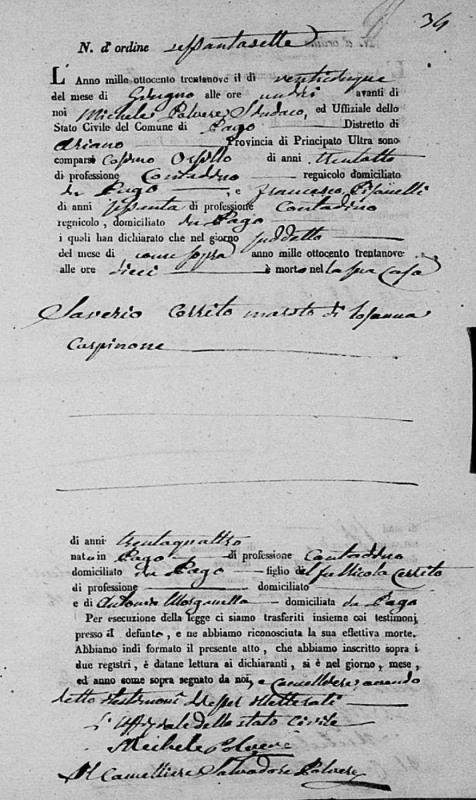 34
N. d'ordine sessantasette
L'Anno mille ottocento trentanove il di venticinque
del mese di Giugno alle ore undici avanti di
noi Michele Polvere Sindaco, ed Uffiziale dello
Stato Civile del Comune di Pago Distretto di
Ariano Provincia di Principato Ultra sono
comparsi Cosimo di anni trentotto
di professione Contadino regnicolo domiciliato
da Pago, e Francesco
di anni sessanta di professione Contadino
regnicolo, domiciliato da Pago
i quali han dichiarato che nel giorno suddetto
del mese di come sopra anno mille ottocento trentanove
alle ore dieci è morto nella sua casa
Saverio Cerrito marito di Rosanna
Carpinone
di anni trentaquattro
nato in Pago di professione Contadino
domiciliato da Pago figlio del fu Nicola Cerrito
di professione domiciliato
e di Antonia Morganella domiciliata da Pago
Per esecuzione della legge ci siamo trasferiti insieme coi testimonj
presso il defunto, e ne abbiamo riconosciuta la sua effettiva morte.
Abbiamo indi formato il presente atto, che abbiamo inscritto sopra i
due registri, è datane lettura ai dichiaranti, si è nel giorno, mese,
ed anno come sopra segnato da noi, e Cancelliere avendo
detto i testimoni d'esser illetterati
L'Uffiziale dello stato Civile
Michele Polvere
Il Cancelliere Salvadore Polvere